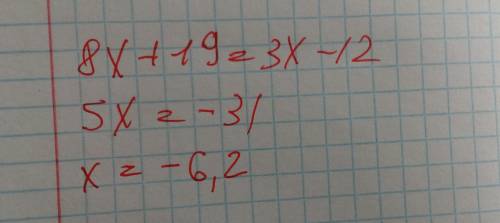 8x+19=3x-12
5x=-31
x=-6,2